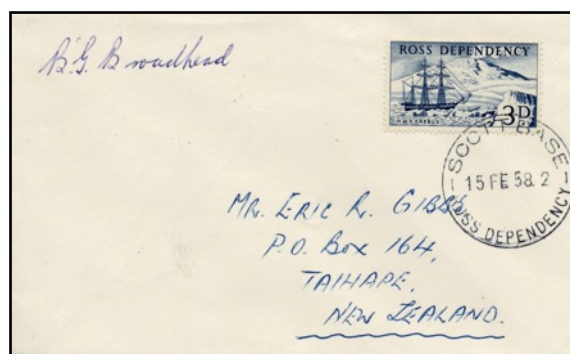 B.G. Broadhead
ROSS DEPENDENCY
3D
H.M.S. EREBUS
SCOTT BASE
15 FE 58. 2
ROSS DEPENDENCY
MR. ERIC R. GIBBS
P.O. BOX 164,
TAIHAPE,
NEW ZEALAND.